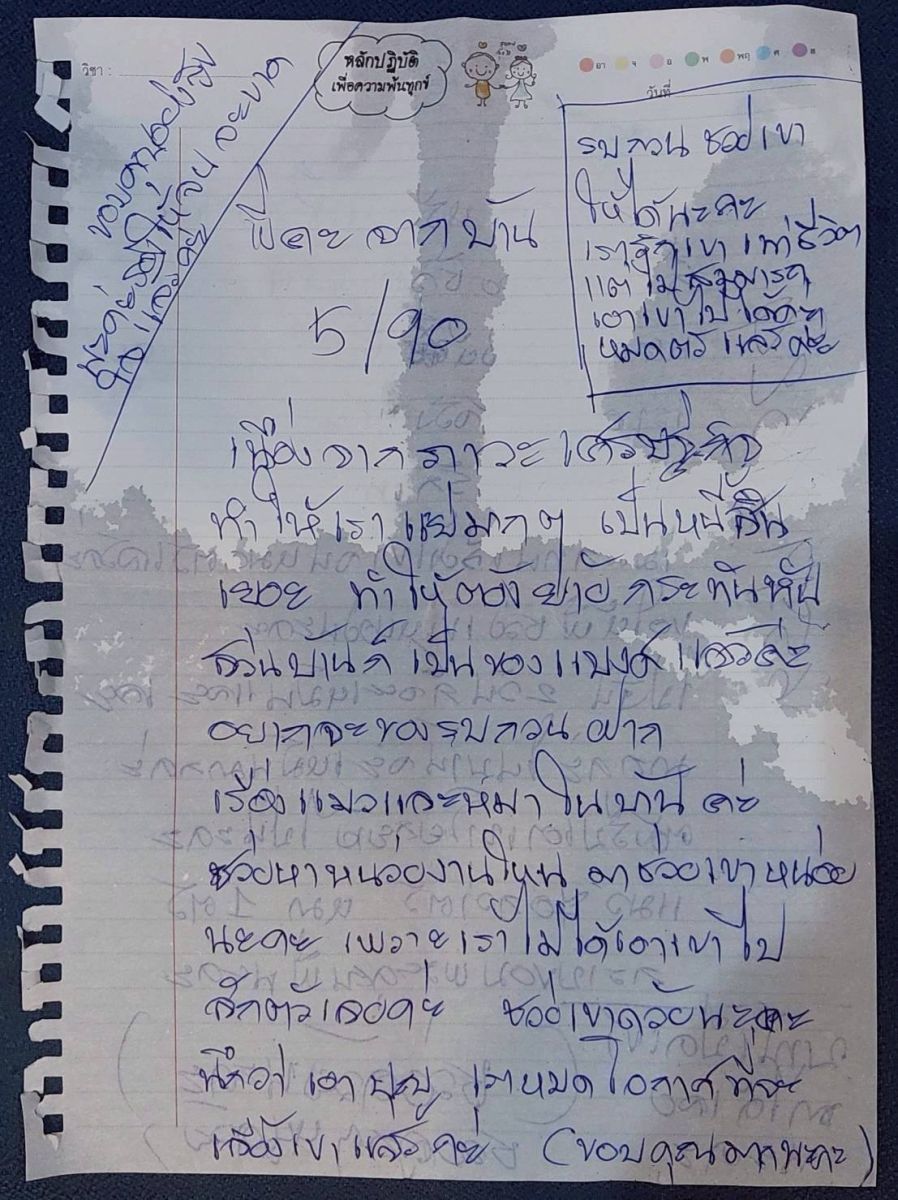 วิชา :
หลักปฏิบัติ
เพื่อความพ้นทุกข์
อา จ อ พ พฤ ศ ส
วันที่
ขอบคุณ
นะคะ
รบกวนช่วยเขา
ให้ได้นะคะ
เรารักเขาเท่าชีวิต
แต่ไม่สามารถ
เอาเขาไปได้ค่ะ
หมดตัวแล้วค่ะ
พี่คะ จากบ้าน
5/90
เนื่องจากภาวะเศรษฐกิจ
ทำให้เราแย่มากๆ เป็นหนี้สิน
เยอะ ทำให้ต้องย้ายกระทันหัน
ส่วนบ้านก็เป็นของแบงค์แล้วค่ะ
อยากจะขอรบกวนฝาก
เรื่องแมวและหมาในบ้านค่ะ
ช่วยหาหน่วยงานไหนมาช่วยเขาหน่อย
นะคะ เพราะเราไม่ได้เอาเขาไป
สักตัวเลยค่ะ ช่วยเขาด้วยนะคะ
นึกว่าเอาบุญ เราหมดโอกาสที่จะ
เลี้ยงเขาแล้วค่ะ (ขอบคุณมากนะคะ)